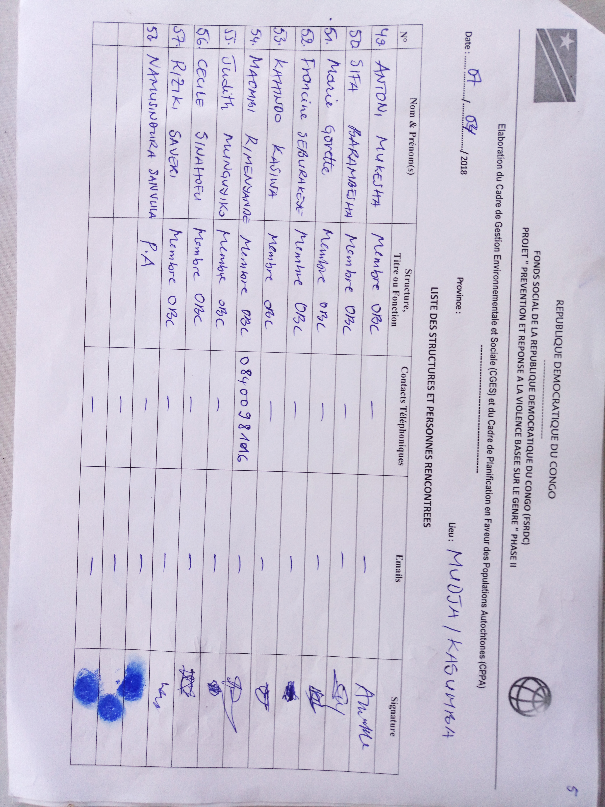 5
REPUBLIQUE DEMOCRATIQUE DU CONGO
FONDS SOCIAL DE LA REPUBLIQUE DEMOCRATIQUE DU CONGO (FSRDC)
PROJET " PREVENTION ET REPONSE A LA VIOLENCE BASEE SUR LE GENRE " PHASE II
Elaboration du Cadre de Gestion Environnementale et Sociale (CGES) et du Cadre de Planification en Faveur des Populations Autochtones (CPPA)
Date : 07 / 04 / 2018 Province : Lieu : MUDJA / KAGUMBA
LISTE DES STRUCTURES ET PERSONNES RENCONTREES
N° Nom & Prénom(s) Structure, Titre ou Fonction Contacts Téléphoniques Emails Signature
49 ANTONI MUKESHA Membre OBC — —
50. SIFA BARAMBESHA Membre OBC — —
51. Marie Gorette Membre OBC — —
52. Francine Membre OBC — —
53. KAHINDO KASIWA Membre OBC — —
54. Membre OBC —
55. Judith Membre OBC — —
56. CECILE Membre OBC — —
57. RIZIKI SAVERI Membre OBC — —
58. P.A — —